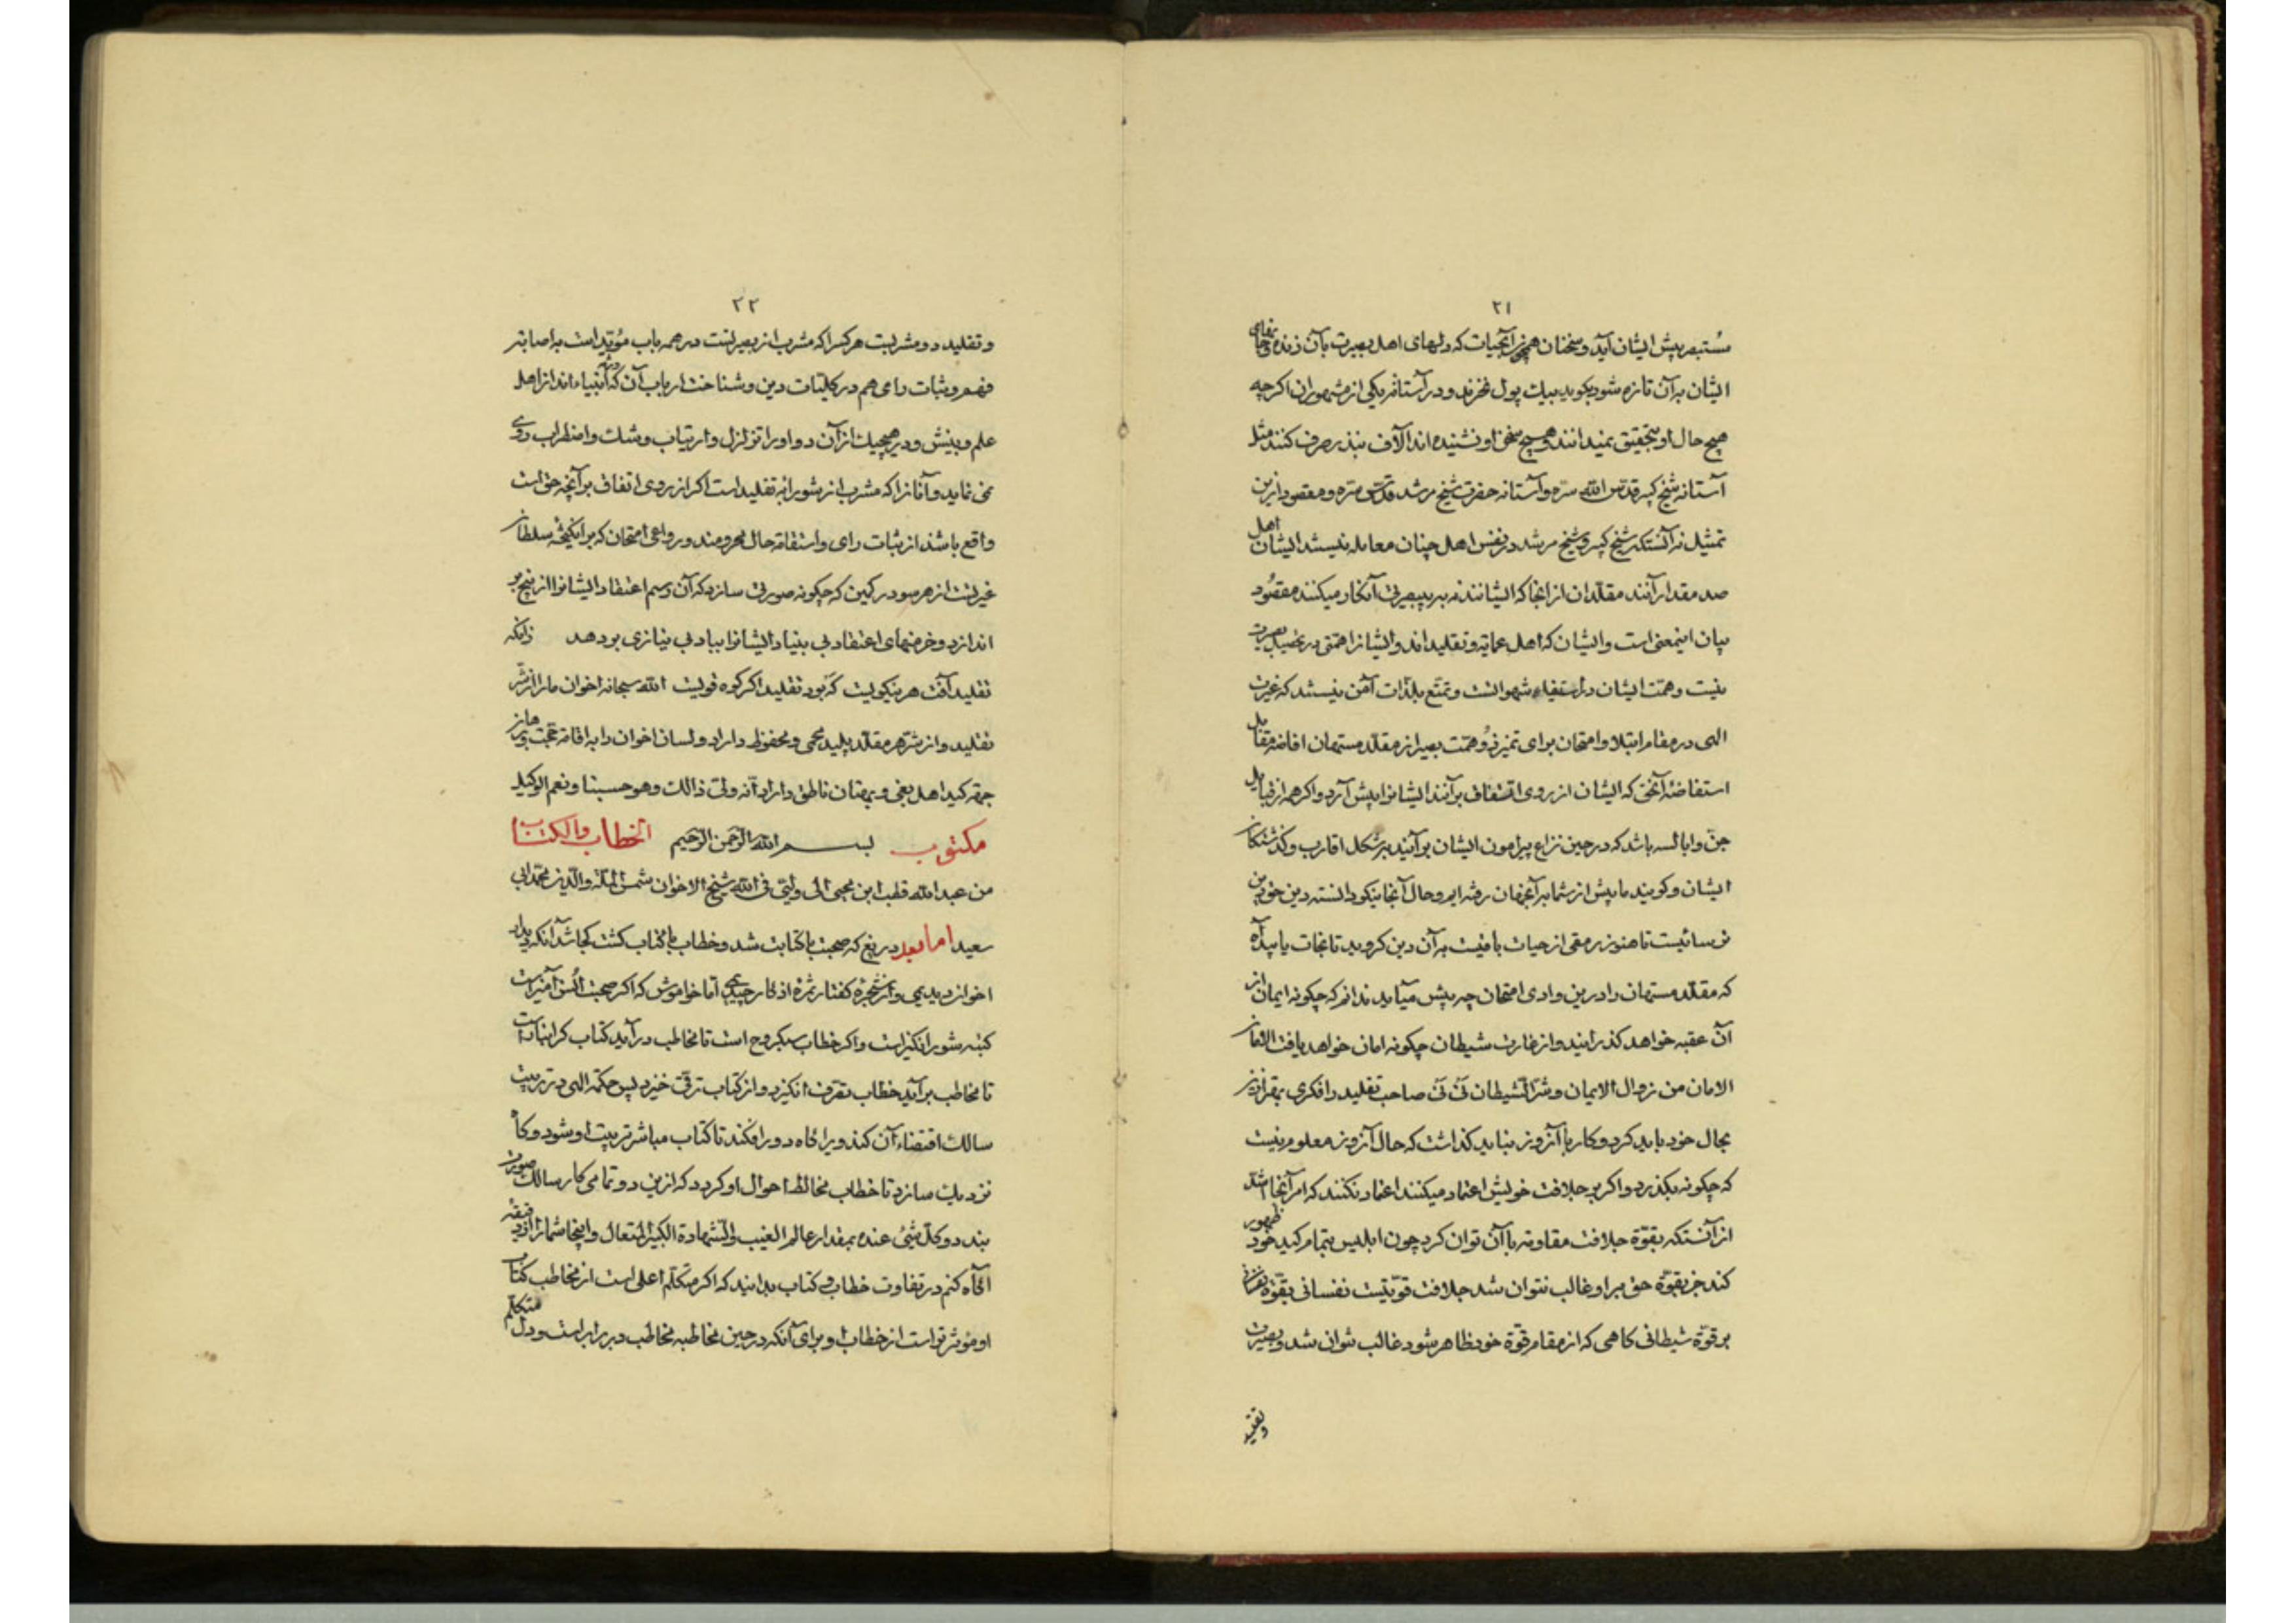 ۲۱
مستبصر پیش ایشان آید و سخنان همچون آبحیات که دلهای اهل بصیرت بآن زنده و جانهای
ایشان به آن تازه شود بکوید بیک پول نخرند و در آستانهٔ یکی از مشهوران اکرچه
هیچ حال او بتحقیق نمیدانند و هیچ سخن او نشنیده اند آلاف نذر صرف کنند مثل
آستانه شیخ کبیر قدس الله سره و آستانه حضرت شیخ مرشد قدس سره و مقصود ازین
تمثیل نه آنستکه شیخ کبیر و شیخ مرشد در نفس اهل چنان معامله نیستند ایشان اهل
صد مقدار آنند مقلدان از انجا که ایشانند نه بر بصیرتی آنکار میکنند مقصود
بیان اینمعنی است و ایشان که اهل عمایه و تقلیداند و ایشانرا همتی در تحصیل بصیرت
نیست و همت ایشان در استیفاء شهواتست و تمتع بلذات آمن نیستند که غیرت
الهی در مقام ابتلا و امتحان برای تمیز ذو همت بصیر از مقلد مستهان افاضه مقابل
استفاضه آنحق که ایشان از روی اتفاق بر آنند ایشانرا پیش آرد و اکر همه از قبایل
جن و ابالسه باشد که در حین نزاع پیرامون ایشان برآیند بر شکل اقارب و کذشتکان
ایشان و کویند ما پیش از شما بر آنجهان رفته ایم و حال آنجا نیکو دانسته دین حق دین
ترسائیست تا هنوز رمقی از حیات باقیست به آن دین کروید تا نجات یابید آه
که مقلد مستهان را درین وادی امتحان چه پیش میآید ندانم که چکونه ایمان از
آن عقبه خواهد کذرانید و از غارت شیطان چکونه امان خواهد یافت الامان
الامان من زوال الایمان و شر الشیطان نی نی صاحب تقلید را فکری بهتر ازین
بحال خود باید کرد و کار با آنروز نباید کذاشت که حال آنروز معلوم نیست
که چکونه بکذرد و اکر بر جلافت خویش اعتماد میکنند اعتماد نکنند که امر آنجا اشد
از آنستکه بقوة جلافت مقاومه با آن توان کرد چون ابلیس بتمام کید خود ظهور
کند جز بقوة حق بر او غالب نتوان شد جلافت قوتیست نفسانی بقوة نفسانی
بر قوة شیطانی کاهی که از مقام قوة خود ظاهر شود غالب نتوان شد و بصیرت
و تقلید
۲۲
و تقلید دو مشربست هر کس را که مشرب از بصیرتست در همه باب مؤید است به اصابه
فهم و ثبات رای هم در کلیات دین و شناخت ارباب آن که انبیاءاند از اهل
علم و بینش و در هیچیک از آن دو او را تزلزل و ارتیاب و شک و اضطراب روی
نمی نماید و آنانرا که مشرب از شورابه تقلید است اکر از روی اتفاق بر آنچه حق است
واقع باشند از ثبات رای و استقامه حال محرومند و دواعی امتحان که برانکیخته سلطان
غیرتست از هر سو در کمین که چکونه صورتی سازد که آن رسم اعتقاد ایشانرا از بیخ بر
اندازد و خرمنهای اعتقاد بی بنیاد ایشانرا بباد بی نیازی بر دهد زانکه
تقلید آفت هر نیکویست که بود تقلید اکر کوه قویست الله سبحانه اخوان ما را از شر
تقلید و از شر هر مقلد پلید محمی و محفوظ داراد و لسان اخوان را به اقامه حجت و برهان
بر کید اهل بغی و بهتان ناطق داراد انه ولی ذالک و هو حسبنا و نعم الوکیل
مکتوب بسم الله الرحمن الرحیم الخطاب والکتاب
من عبدالله قطب ابن محیی الی ولیی فی الله شیخ الاخوان شمس الملة والدین محمد ابی
سعید اما بعد دریغ که صحبت با کتابت شد و خطاب با کتاب کشت کجا شد آنکه دیدار
اخوان دیدیمی و از شجره کفتار ثمره اذکار چیدیمی اما خاموش که اکر صحبت انس آمیزاست
کتبه شور انکیز است و اکر خطاب سبکروح است تا مخاطب درآید کتاب کرانمایه است
تا مخاطب برآید خطاب تفرق انکیزد و از کتاب ترقی خیزد پس حکمه الهی در تربیت
سالک اقتضاء آن کند ویرا کاه دور افکند تا کتاب مباشر تربیت او شود و کاه
نزدیک سازد تا خطاب مخالط احوال او کردد که ازین دو تمامی کار سالک صورت
بندد و کل شیئ عنده بمقدار عالم الغیب والشهادة الکبیر المتعال و اینجا شما را از دقیقه
اکاه کنم در تفاوت خطاب و کتاب بدانید که اکر متکلم اعلی است از مخاطب کتاب
او مؤثرتر است از خطاب او برای آنکه در حین مخاطبه مخاطب در برابر است و دل متکلم